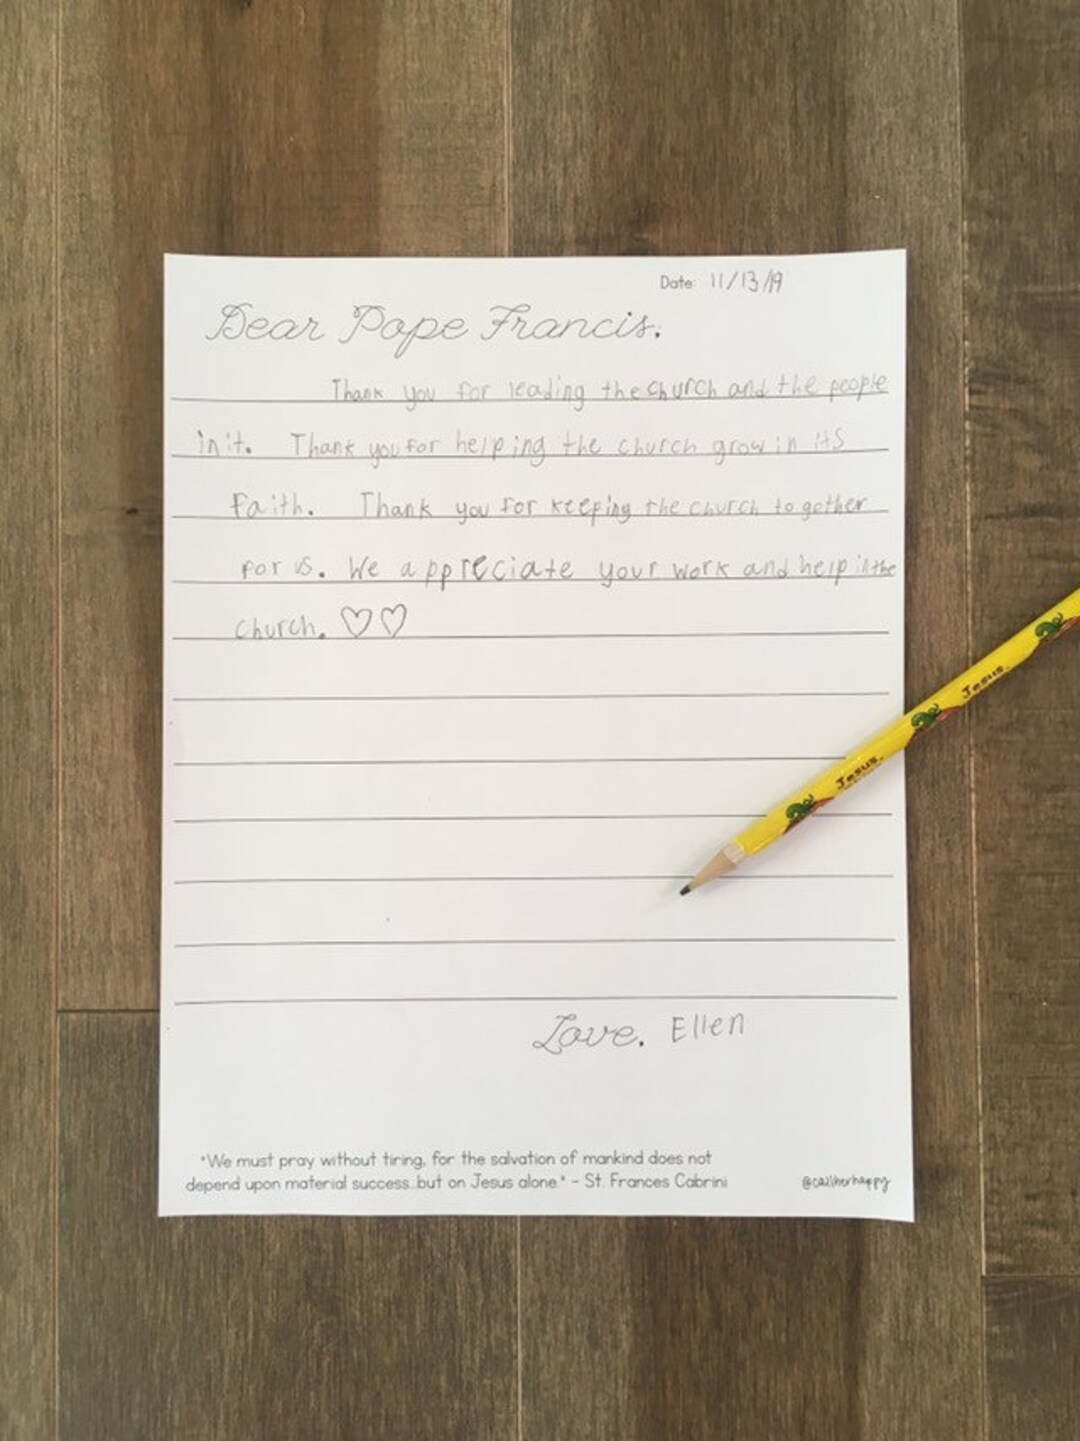 Date: 11/13/19
Dear Pope Francis,
Thank you for leading the church and the people
in it. Thank you for helping the church grow in its
faith. Thank you for keeping the church together
for us. We appreciate your work and help in the
church. ♡♡
Jesus.
Jesus.
Love, Ellen
"We must pray without tiring, for the salvation of mankind does not
depend upon material success..but on Jesus alone." - St. Frances Cabrini
@callherhappy